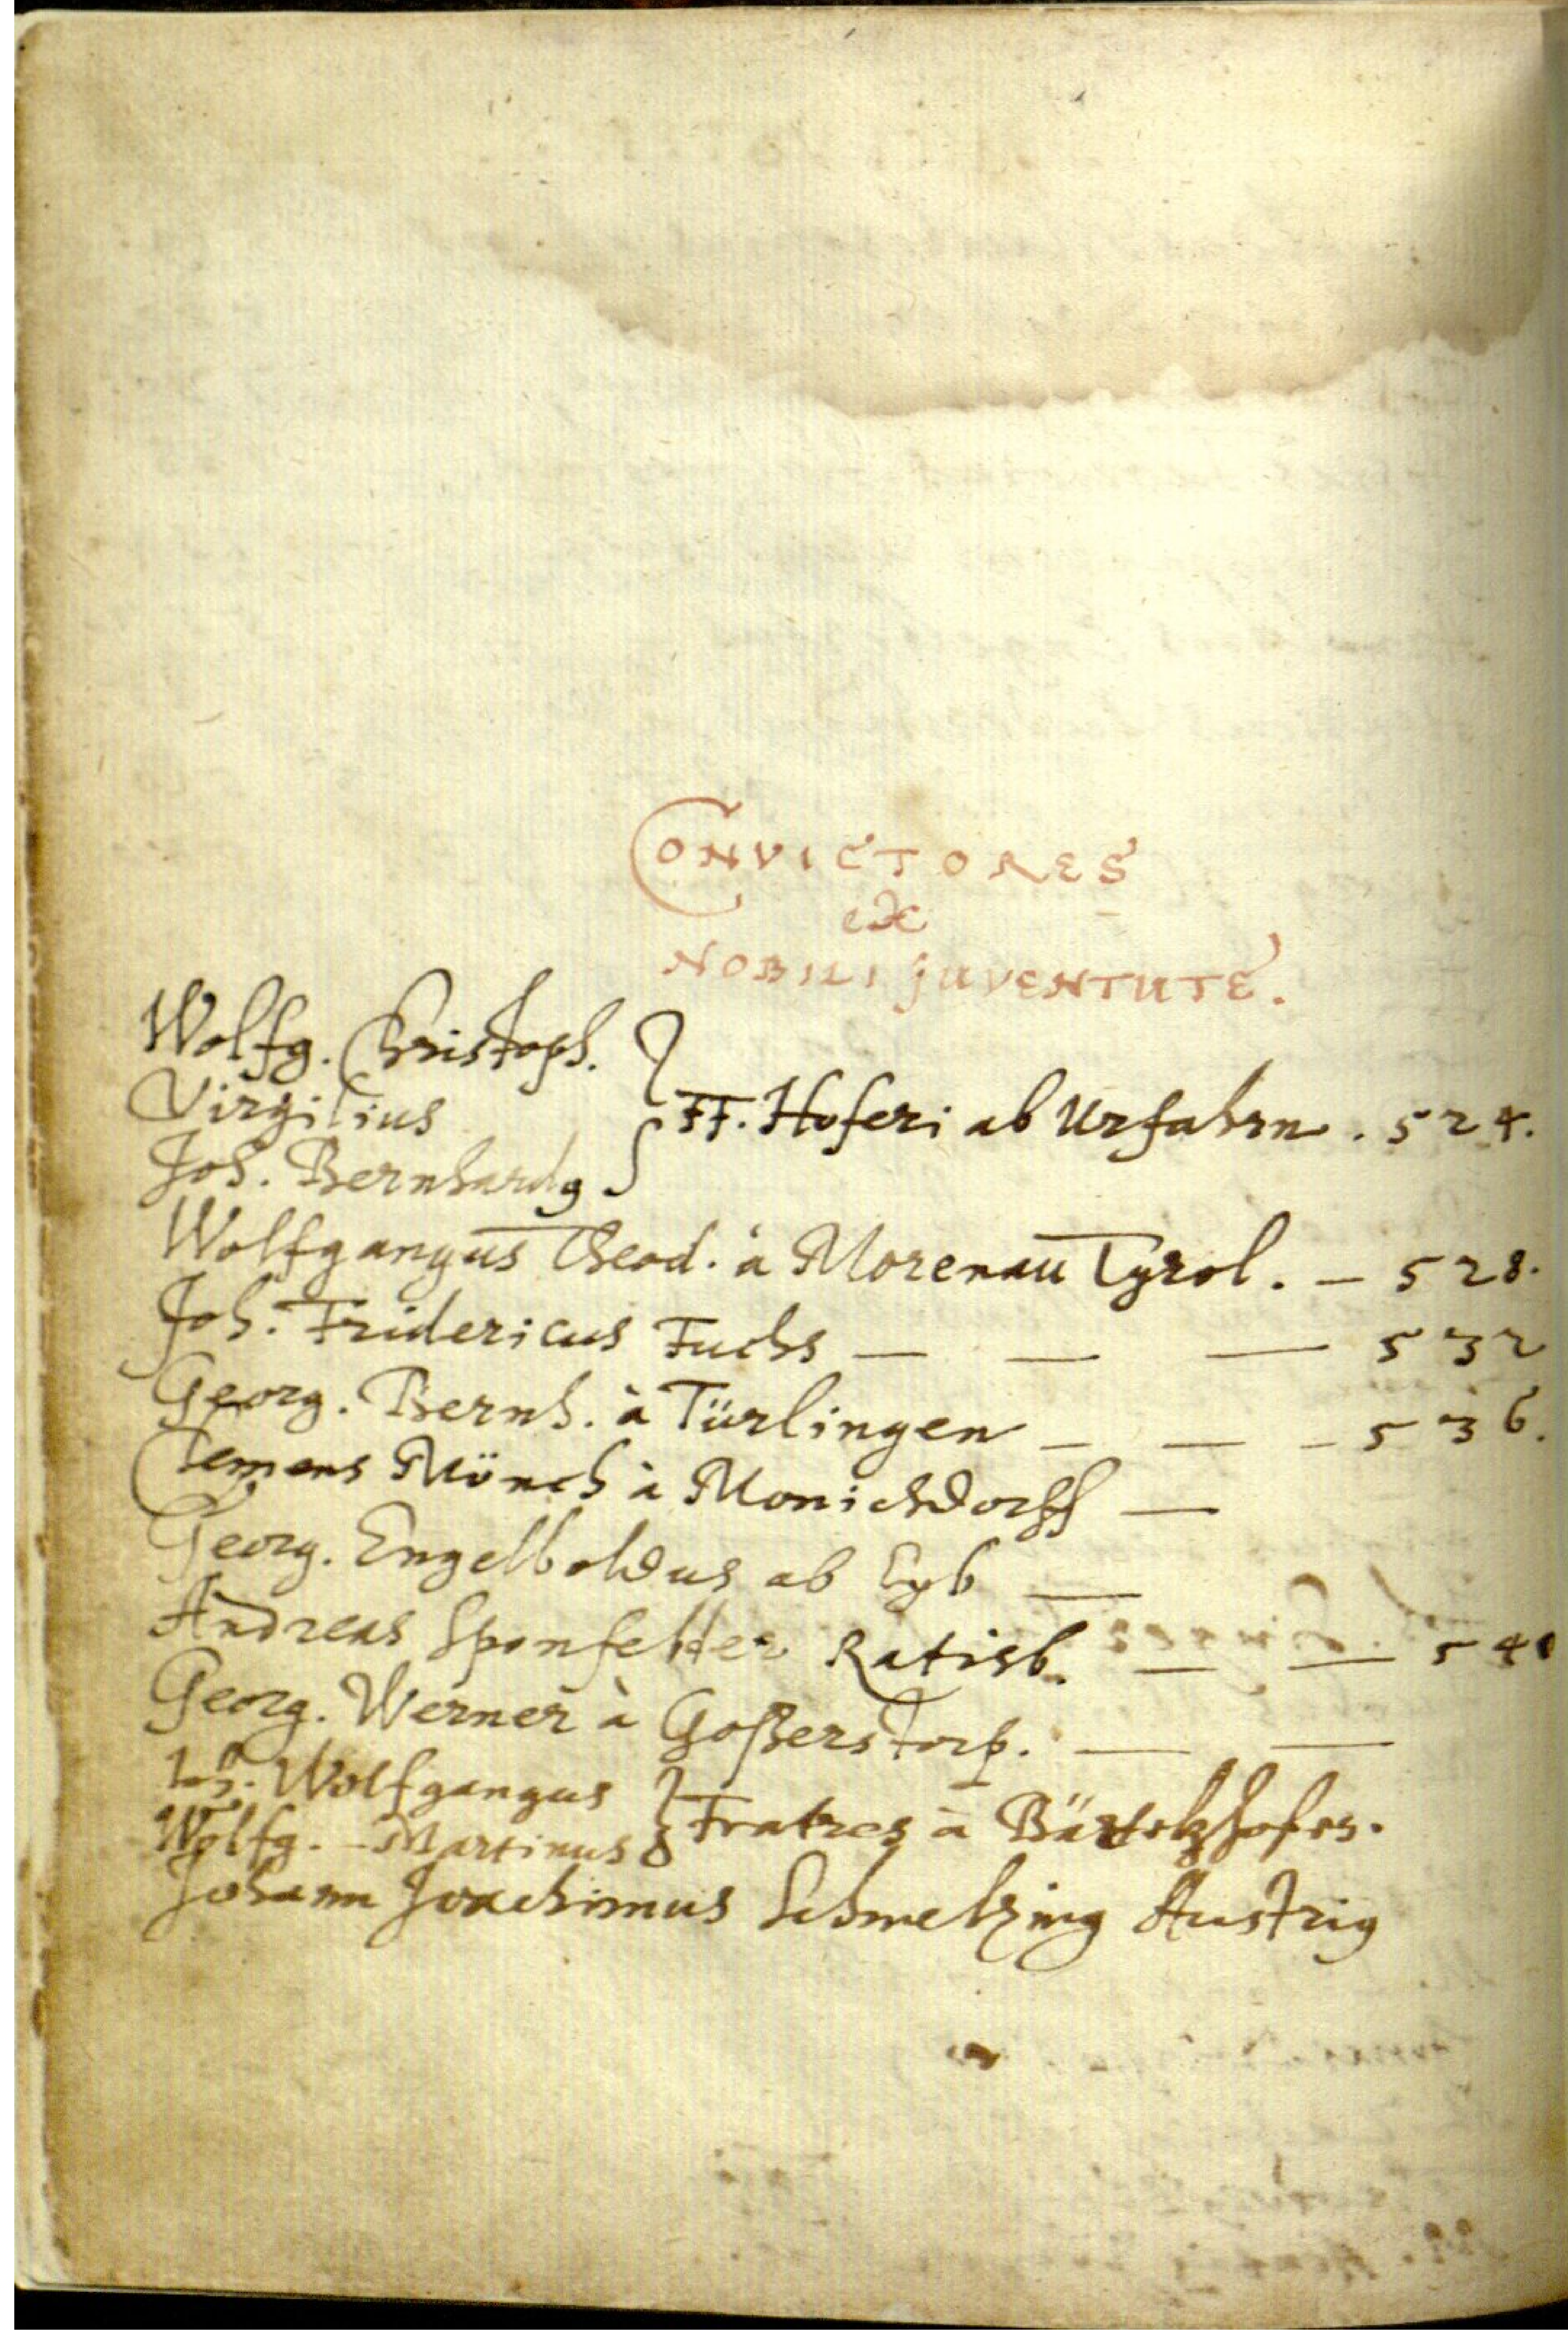 CONVICTORES
ex
NOBILI JUVENTUTE.
Wolfg. Christoph.
Virgilius
FF. Hoferi ab Urfahrn. 524.
Joh. Bernhardg
Wolfgangus Theod. à Morenau Tyrol. — 528.
Joh. Fridericus Fuchs — — — 532
Georg. Bernh. à Türlingen — — — 536.
Clemens Mönch à Monichdorff —
Georg. Engelboldus ab Eyb —
Andreas Ratisb. — — 541
Georg. Werner à Goßerstorf. — —
Joh. Wolfgangus
Fratres à
Wolfg. - Martinus
Johann Joachimus Schmelzing Austrig